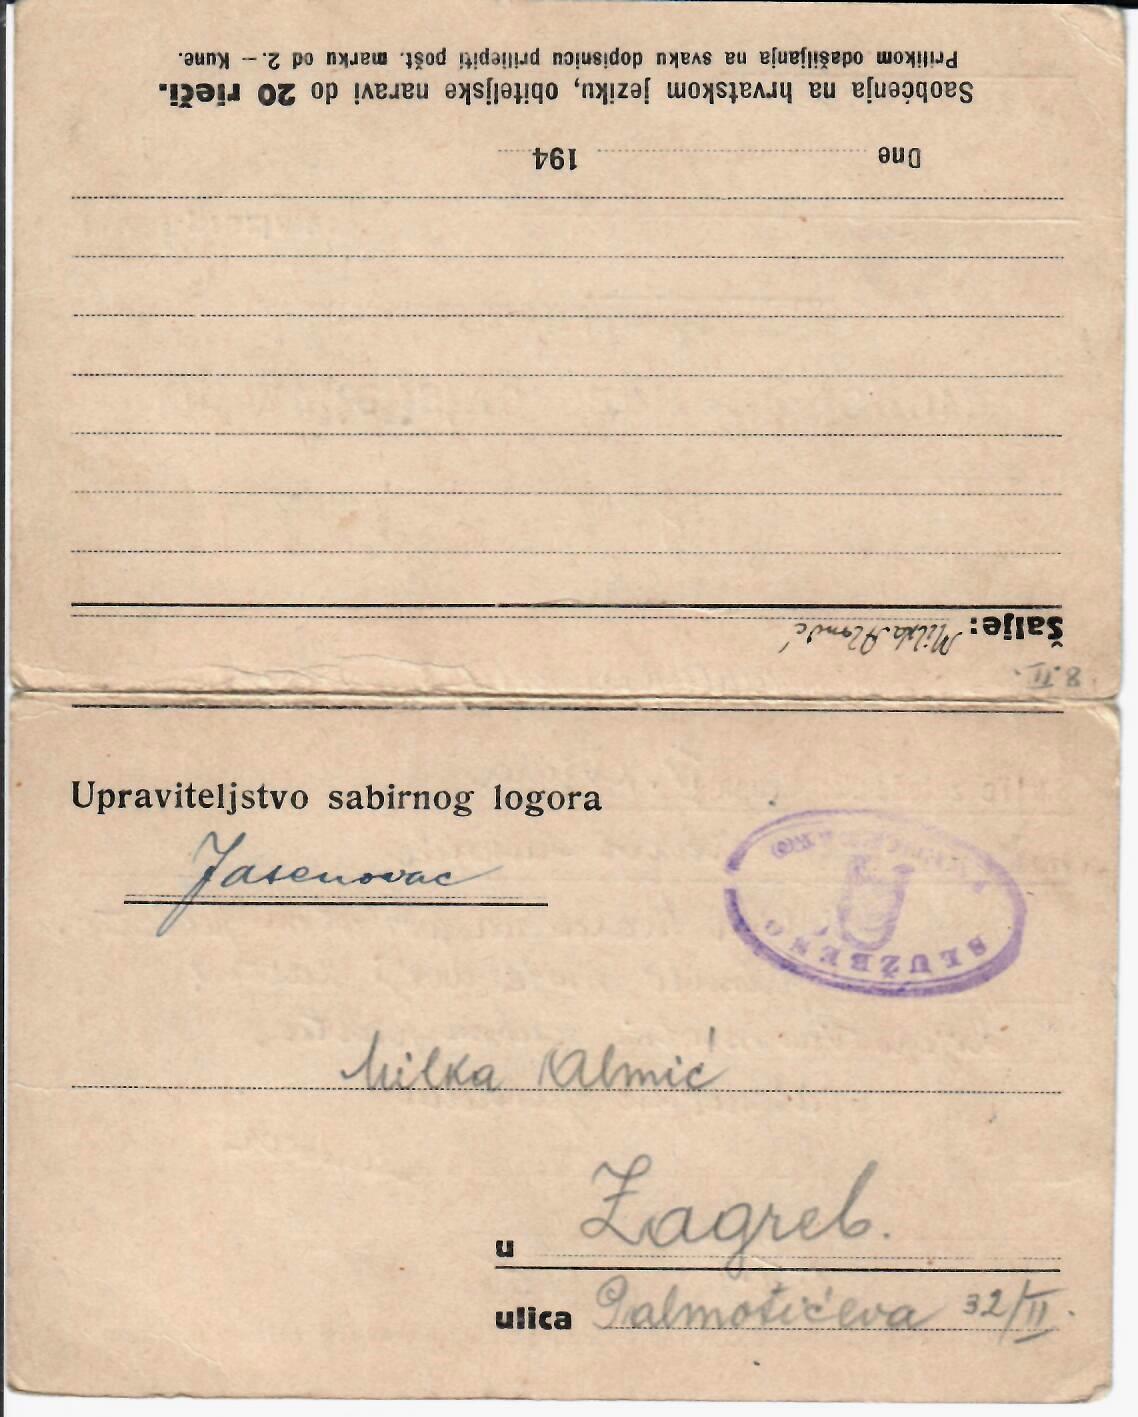 Prilikom odašiljanja na svaku dopisnicu priliepiti pošt. marku od 2.– Kune.
Saobćenja na hrvatskom jeziku, obiteljske naravi do 20 rieči.
Dne 194
Šalje: Milka
8.II.
Upraviteljstvo sabirnog logora
Jasenovac
SLUŽBENO
Milka Almić
u Zagreb.
ulica Palmotićeva 32/II.